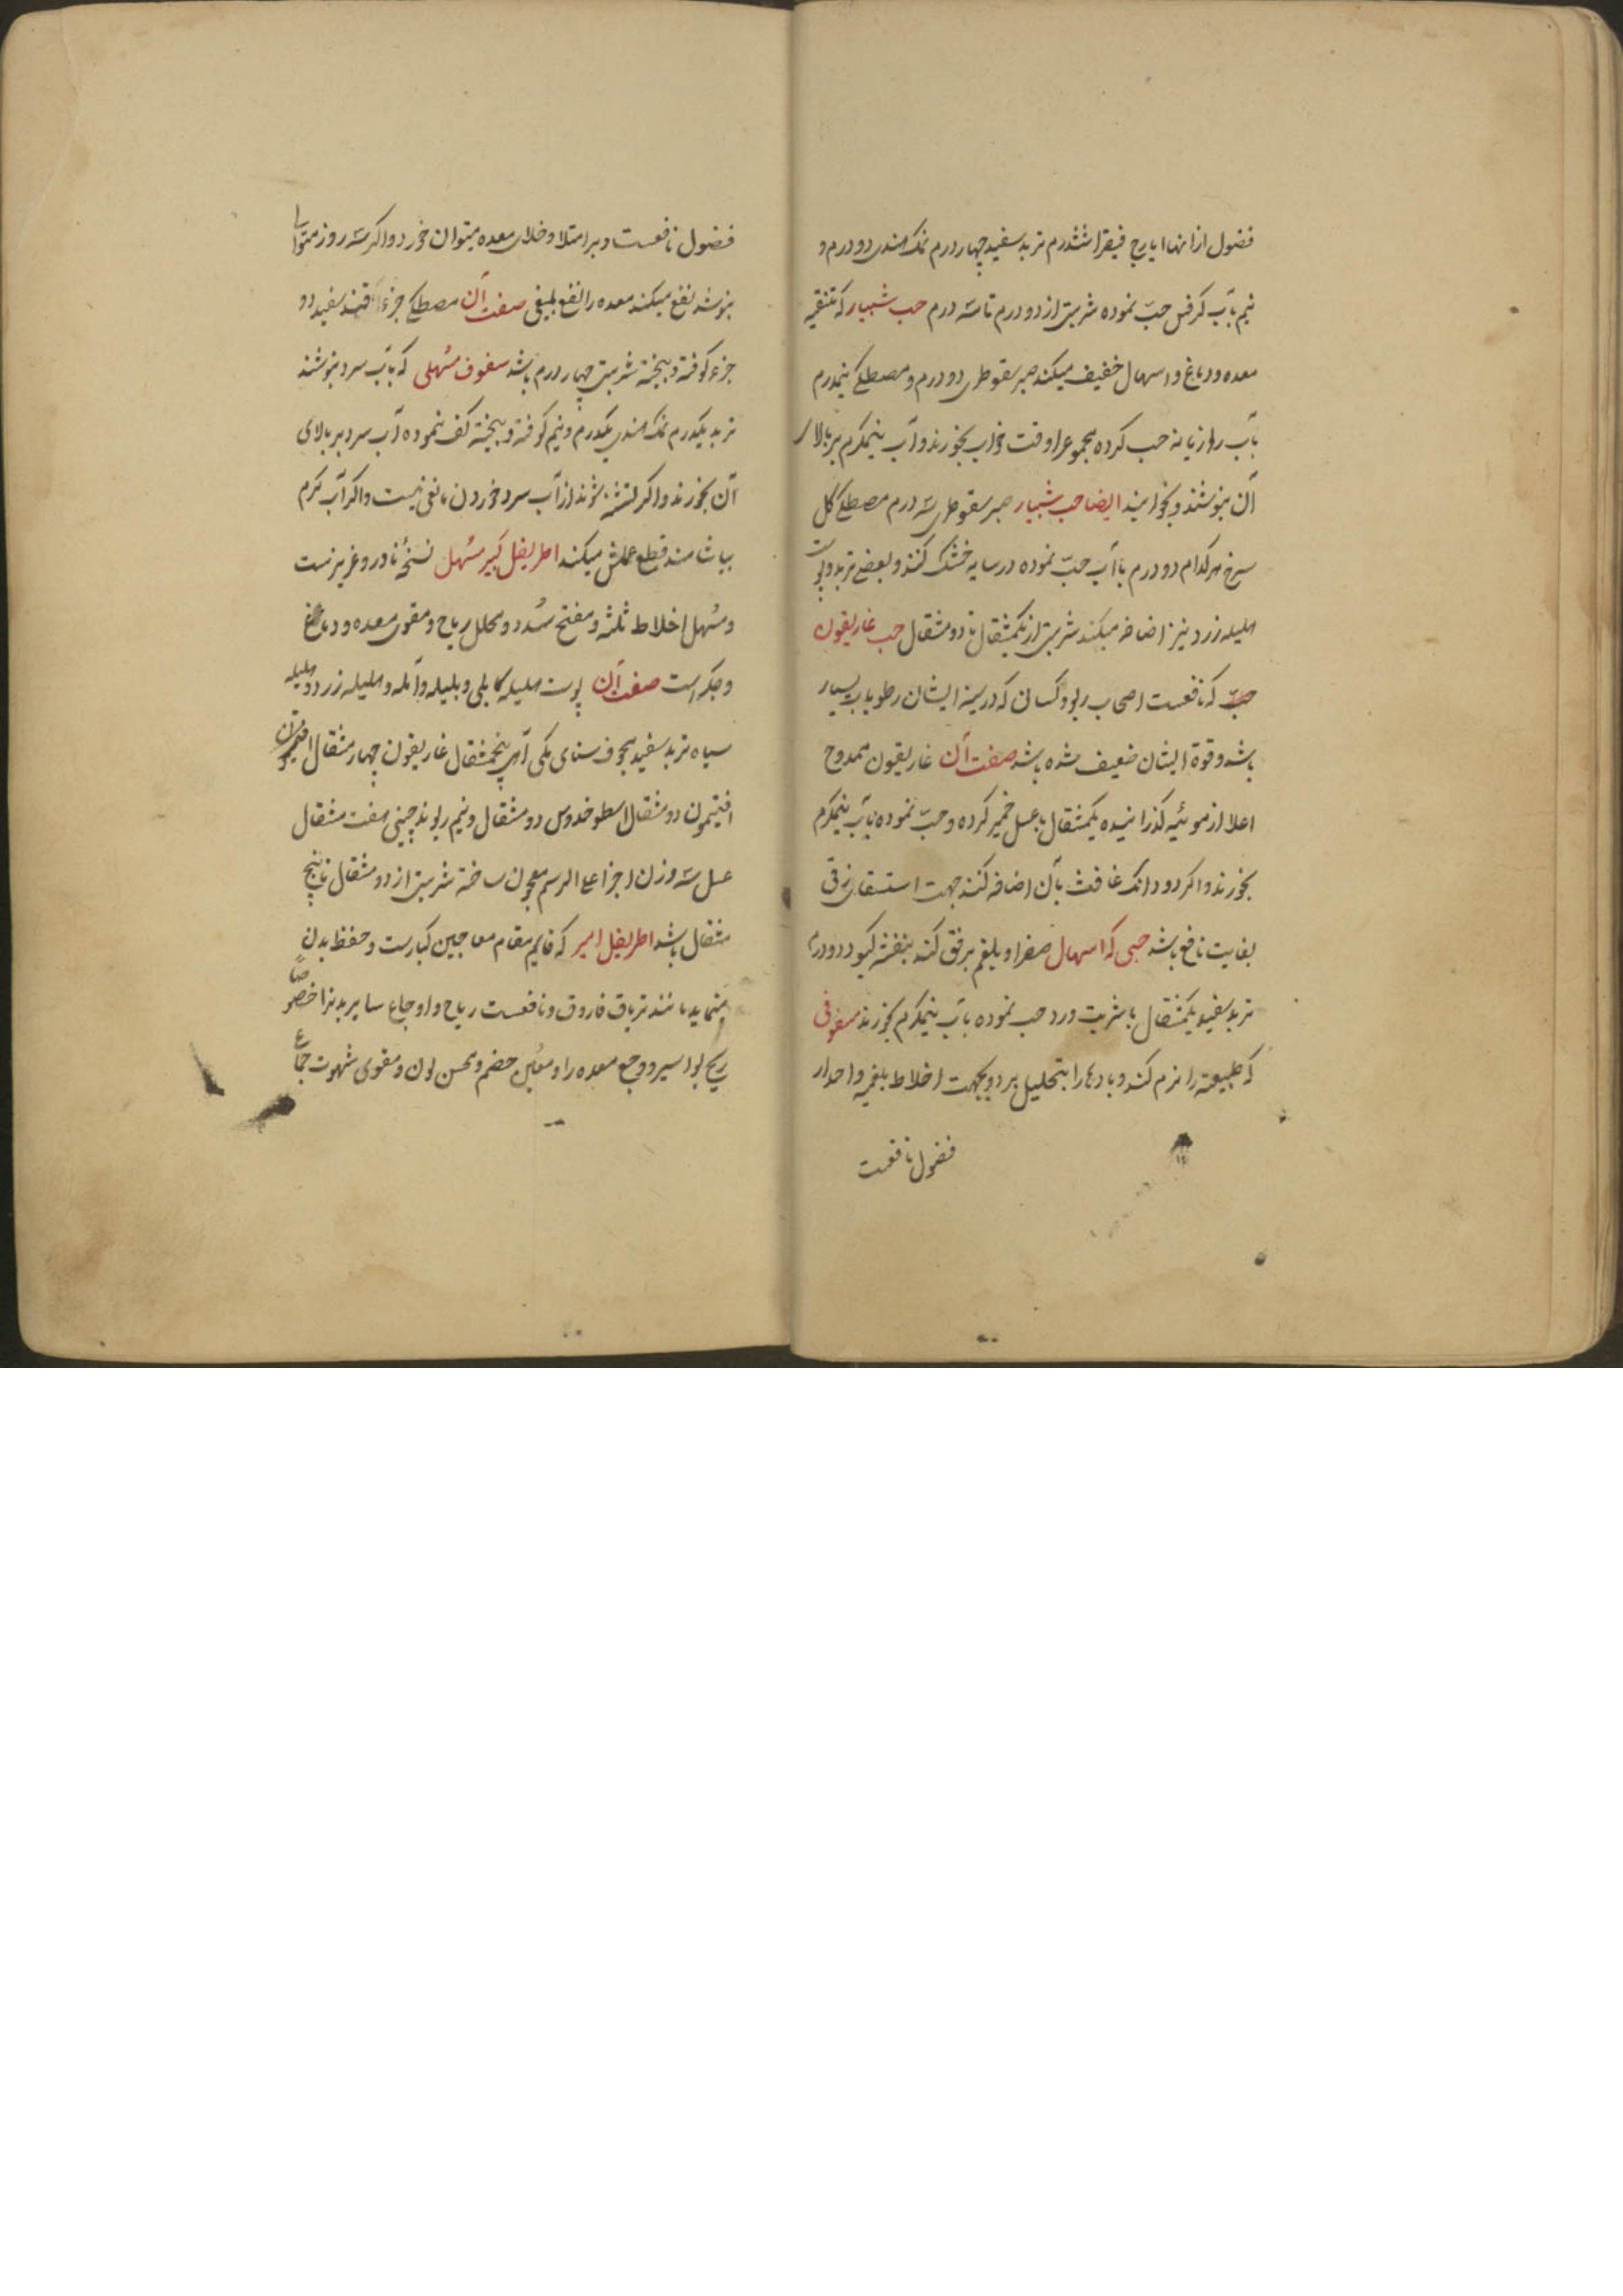 فضول از انها ایارج فیقرا ششدرم تربد سفید چهار درم نمک هندی دو درم و
نیم بآب کرفس حبّ نموده شربتی از دو درم تا سه درم حب شبیار که تنقیه
معده و دماغ و اسهال خفیف میکند صبر سقوطری دو درم و مصطکی نیمدرم
بآب رازیانه حب کرده مجموعرا وقت خواب بخورند و آب نیمکرم بر بالای
آن بنوشند و بخوابند ایضا حب شبیار صبر سقوطری سه درم مصطکی کل
سرخ هرکدام دو درم با آب حبّ نموده در سایه خشک کنند و بعضی تربد و پوست
هلیله زرد نیز اضافه میکنند شربتی از یکمثقال تا دو مثقال حب غاریقون
حبّ که نافعست اصحاب ربو و کسانی که در سینه ایشان رطوبات بسیار
باشد و قوة ایشان ضعیف شده باشد صفت آن غاریقون ممدوح
اعلا از موئینه کذرانیده یکمثقال با عسل خمیر کرده و حبّ نموده بآب نیمکرم
بخورند و اکر دو دانک غافث بآن اضافه کنند جهت استسقای زقی
بغایت نافع باشد حبی که اسهال صفرا و بلغم برفق کند بنفشه کبود دو درم
تربد سفید یکمثقال با شربت ورد حب نموده بآب نیمکرم بخورند سفوفی
که طبیعة را نرم کند و بادها را بتحلیل برد و بجهت اخلاط بلغمیه و احدار
فضول نافعست
فضول نافعست و بر امتلا و خلای معده میتوان خورد و اکر سه روز متوالی
بنوشد نفع میکند معده را نفع بلیغی صفت آن مصطکی جزء قند سفید دو
جزء کوفته و بیخته شربتی چهار درم باشد سفوف مسهلی که بآب سرد بنوشند
تربد یکدرم نمک هندی یکدرم و نیم کوفته و بیخته کف نموده آب سرد بر بالای
آن بخورند و اکر تشنه شوند از آب سرد خوردن مانعی نیست و اکر آب کرم
بیاشامند قطع عملش میکند اطریفل کبیر مسهل نسخهٔ نادر و عزیزست
و مسهل اخلاط ثلثه و مفتح سُدد و محلل ریاح و مقوی معده و دماغ
و جکر است صفت آن پوست هلیله کابلی و بلیله و آمله و هلیله زرد و هلیله
سیاه تربد سفید مجوف سنای مکی از هر یک پنجمثقال غاریقون چهار مثقال
افتیمون دو مثقال اسطوخدوس دو مثقال و نیم ریوند چینی هفت مثقال
عسل سه وزن اجزا علی الرسم معجون ساخته شربتی از دو مثقال تا پنج
مثقال باشد اطریفل امیر که قایم مقام معاجین کبارست و حفظ بدن
مینماید مانند تریاق فاروق و نافعست ریاح و اوجاع سایر بدنرا خصوصاً
ریح بواسیر و وجع معده را و معین هضم و محسن لون و مقوی شهوت جماع